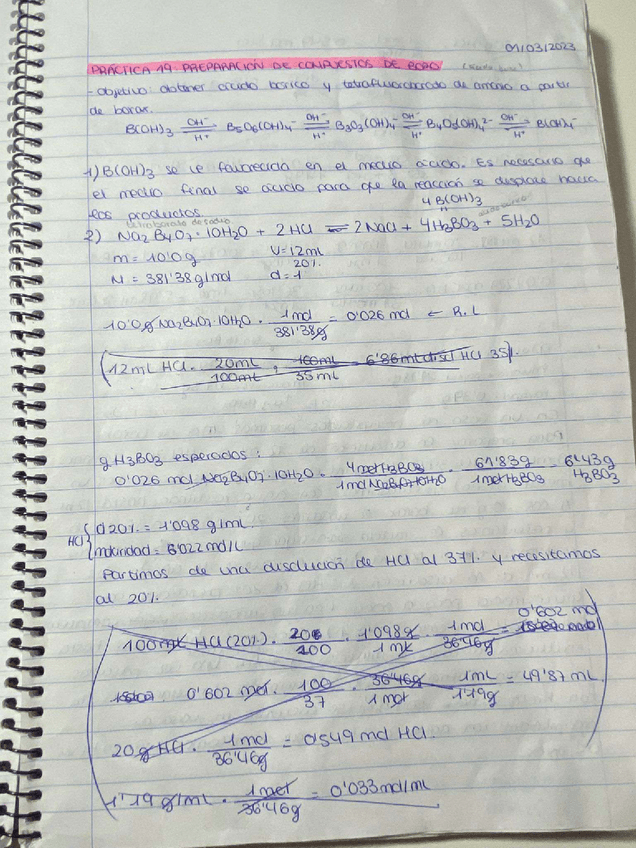 01/03/2023
PRÁCTICA 19. PREPARACIÓN DE COMPUESTOS DE BORO
- Objetivo: obtener ácido bórico y tetrafluoroborato de amonio a partir
de borax.
B(OH)3 ⇌ B5O6(OH)4⁻ ⇌ B3O3(OH)4⁻ ⇌ B4O5(OH)4²⁻ ⇌ B(OH)4⁻
OH⁻ OH⁻ OH⁻ OH⁻
H⁺ H⁺ H⁺ H⁺
1) B(OH)3 se ve favorecida en el medio ácido. Es necesario que
el medio final sea ácido para que la reacción se desplace hacia
los productos.
4 B(OH)3
tetraborato de sodio
2) Na2B4O7·10H2O + 2 HCl ⇌ 2 NaCl + 4 H3BO3 + 5H2O
m = 10'0 g V = 12 mL
20%
M = 381'38 g/mol d = 1
10'0 g Na2B4O7·10H2O · 1 mol / 381'38 g = 0'026 mol ← R.L
(12 mL HCl · 20 mL / 100 mL · 100 mL / 35 mL = 6'86 mL disol HCl 35%)
g H3BO3 esperados :
0'026 mol Na2B4O7·10H2O · 4 mol H3BO3 / 1 mol Na2B4O7·10H2O · 61'83 g / 1 mol H3BO3 = 6'43 g H3BO3
HCl { d 20% = 1'098 g/mL
molaridad = 6'022 mol/L
Partimos de una disolución de HCl al 37% y necesitamos
al 20%
100 mL HCl (20%) · 20 / 100 · 1'098 g / 1 mL · 1 mol / 36'46 g = 0'602 mol
0'602 mol · 100 / 37 · 36'46 g / 1 mol · 1 mL / 1'19 g = 49'87 mL
20 g HCl · 1 mol / 36'46 g = 0'549 mol HCl.
1'19 g/mL · 1 mol / 36'46 g = 0'033 mol/mL